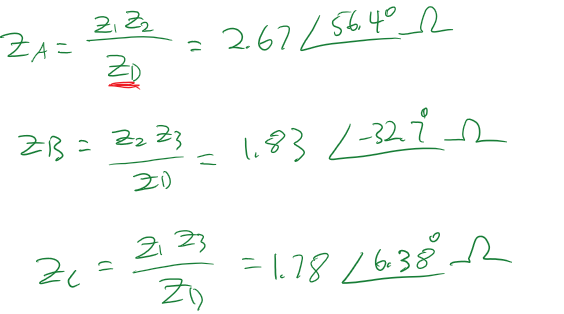 Z_A = Z_1 Z_2 / Z_D = 2.67 ∠56.4° Ω
Z_B = Z_2 Z_3 / Z_D = 1.83 ∠-32.7° Ω
Z_C = Z_1 Z_3 / Z_D = 1.78 ∠6.38° Ω